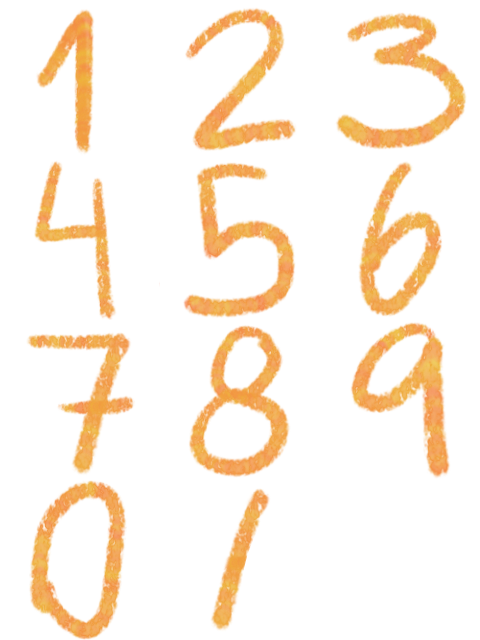 1 2 3
4 5 6
7 8 9
0 /